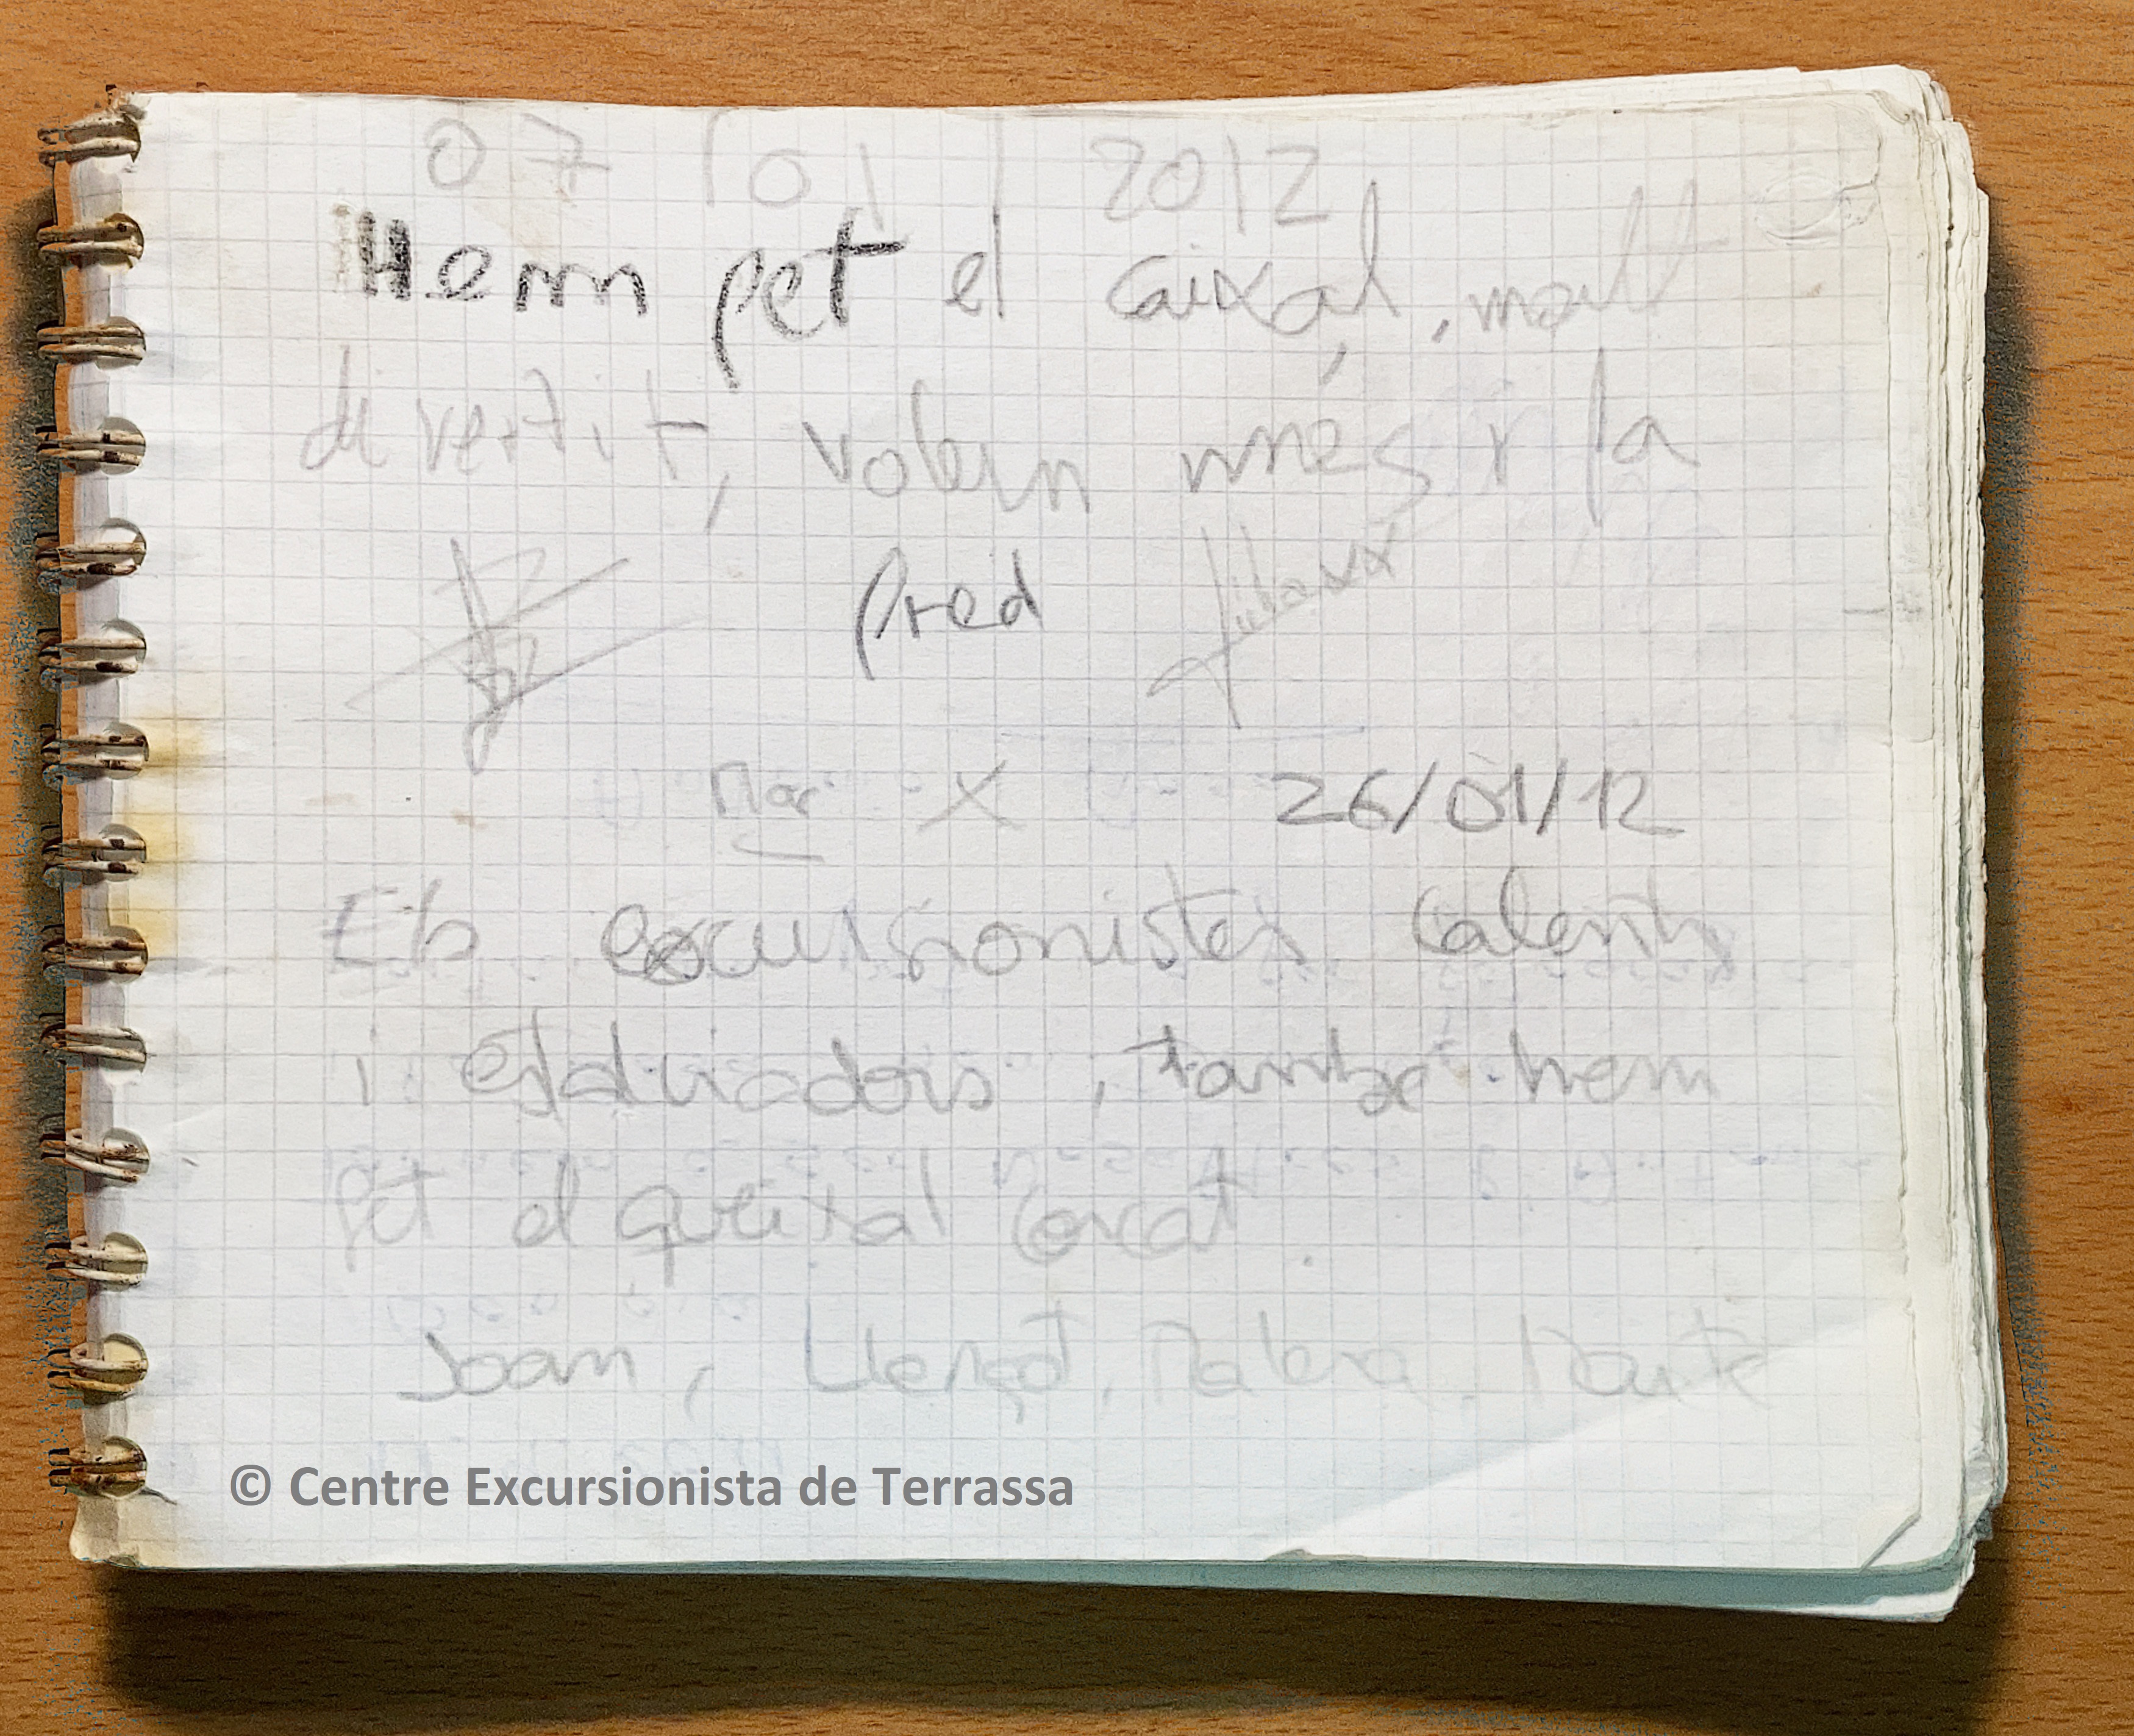 07/01/2012
Hem fet el caixal, molt
divertit, volem més i la
fred
Mar X 26/01/12
Els excursionistes calents
i estalviadors, també hem
fet el queixal corcat.
Joan, Llençot, Malena,
© Centre Excursionista de Terrassa